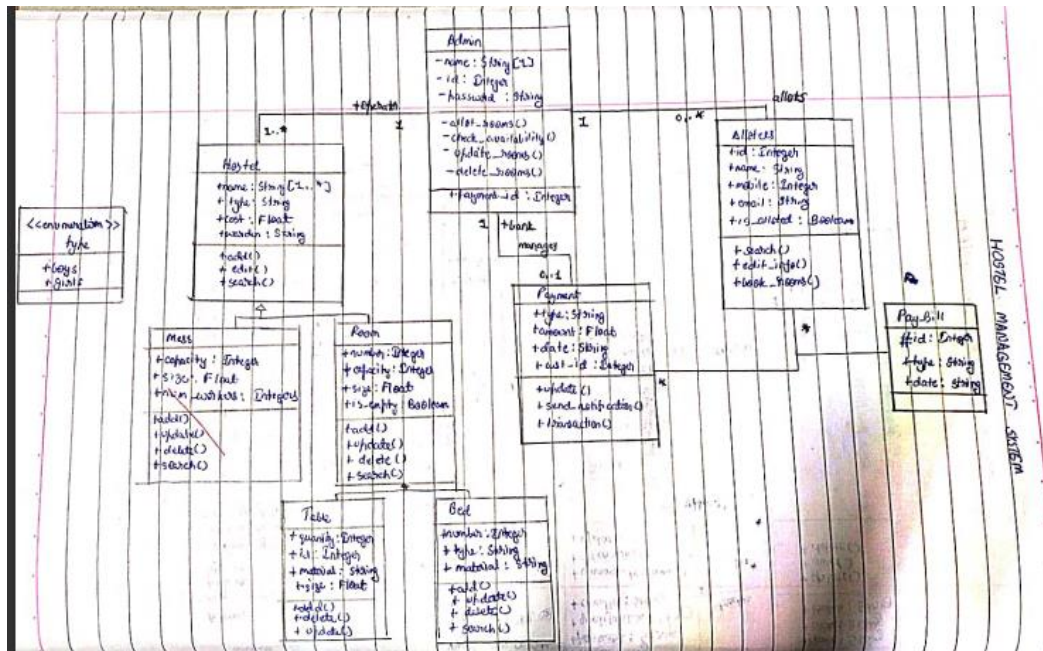 Admin
-name : String [1]
-id : Integer
-password : String
-allot_rooms()
-check_availability()
-update_rooms()
-delete_rooms()
+payment_id : Integer
1..*
1
1
0..*
allots
Hostel
+name : String [1..*]
+type : String
+cost : Float
+warden : String
+add()
+edit()
+search()
<<enumeration>>
type
+boys
+girls
Allotees
+id : Integer
+name : String
+mobile : Integer
+email : String
+is_alloted : Boolean
+search()
+edit_info()
+book_rooms()
1
+bank
manages
0..1
Payment
+type : String
+amount : Float
+date : String
+cust_id : Integer
+update()
+send_notification()
+transaction()
*
*
Pay_bill
#id : Integer
+type : String
+date : String
HOSTEL MANAGEMENT SYSTEM
Mess
+capacity : Integer
+size : Float
+num_workers : Integers
+add()
+update()
+delete()
+search()
Room
+number : Integer
+capacity : Integer
+size : Float
+is_empty : Boolean
+add()
+update()
+delete()
+search()
Table
+quantity : Integer
+id : Integer
+material : String
+size : Float
+add()
+delete()
+update()
Bed
+number : Integer
+type : String
+material : String
+add()
+update()
+delete()
+search()